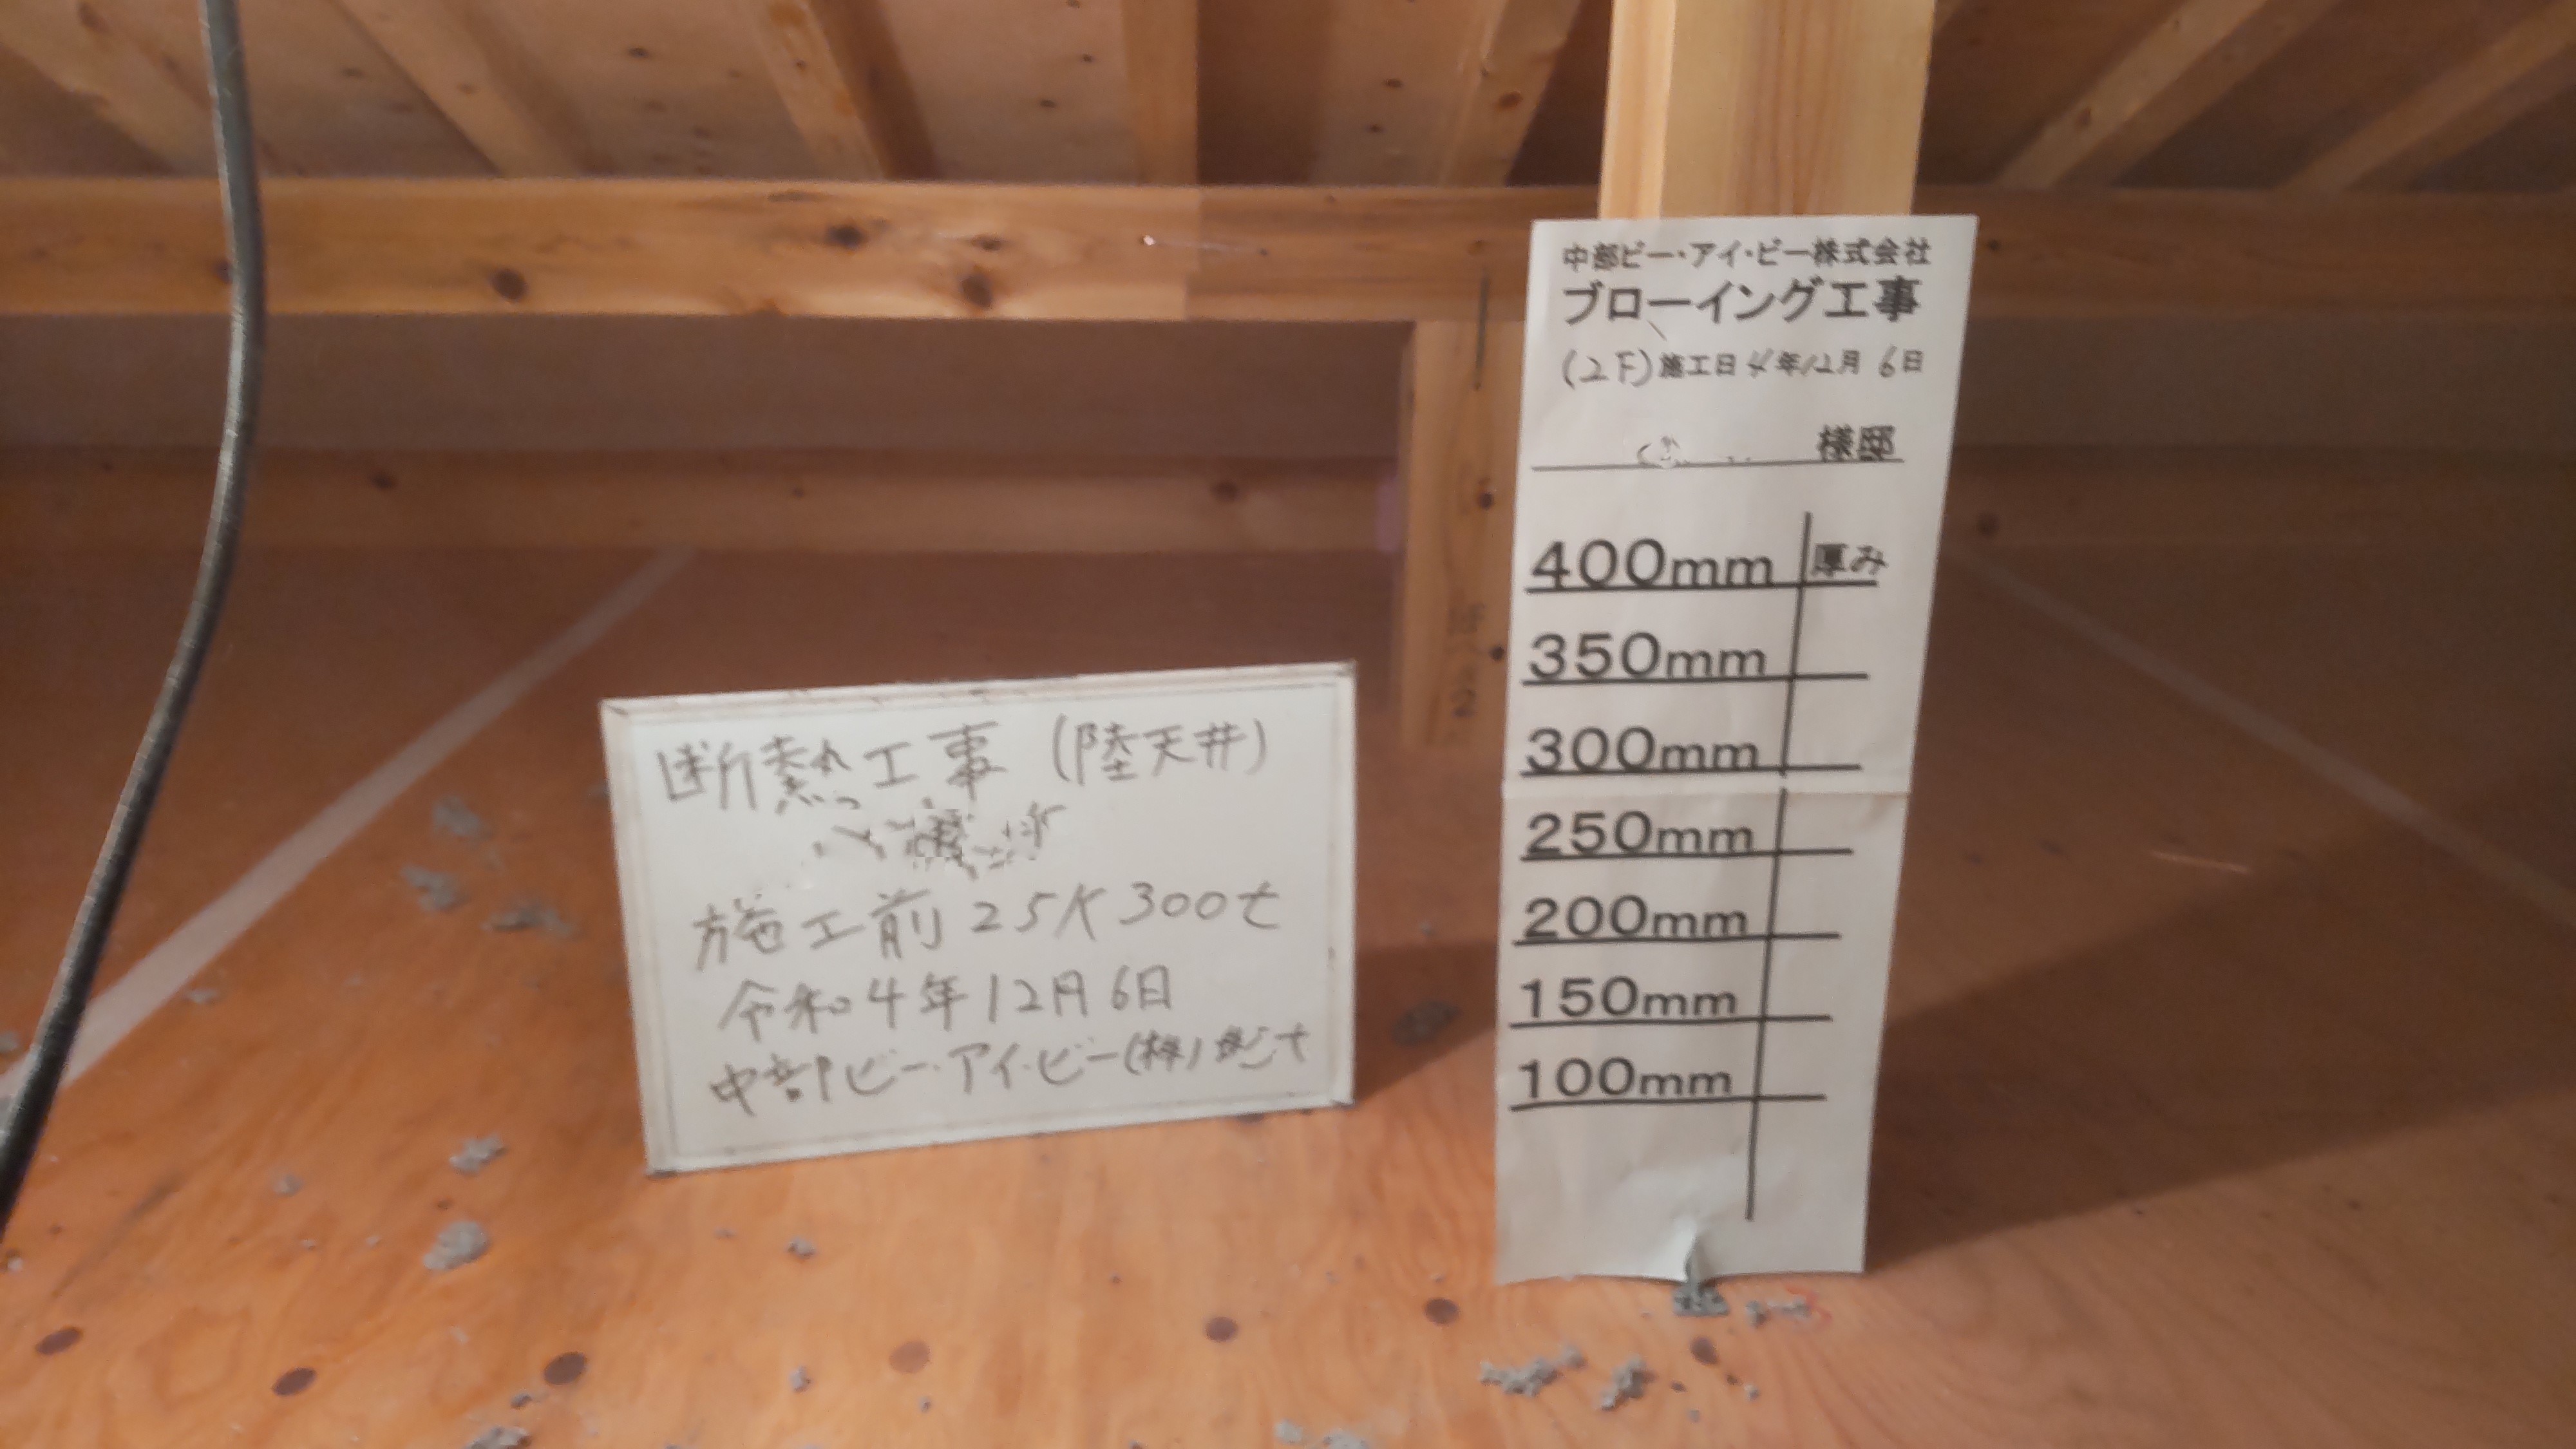 断熱工事(陸天井)
施工前 25K 300t
令和4年12月6日
中部ビー・アイ・ビー(株)
中部ビー・アイ・ビー株式会社
ブローイング工事
(2F)施工日4年12月6日
様邸
400mm 厚み
350mm
300mm
250mm
200mm
150mm
100mm